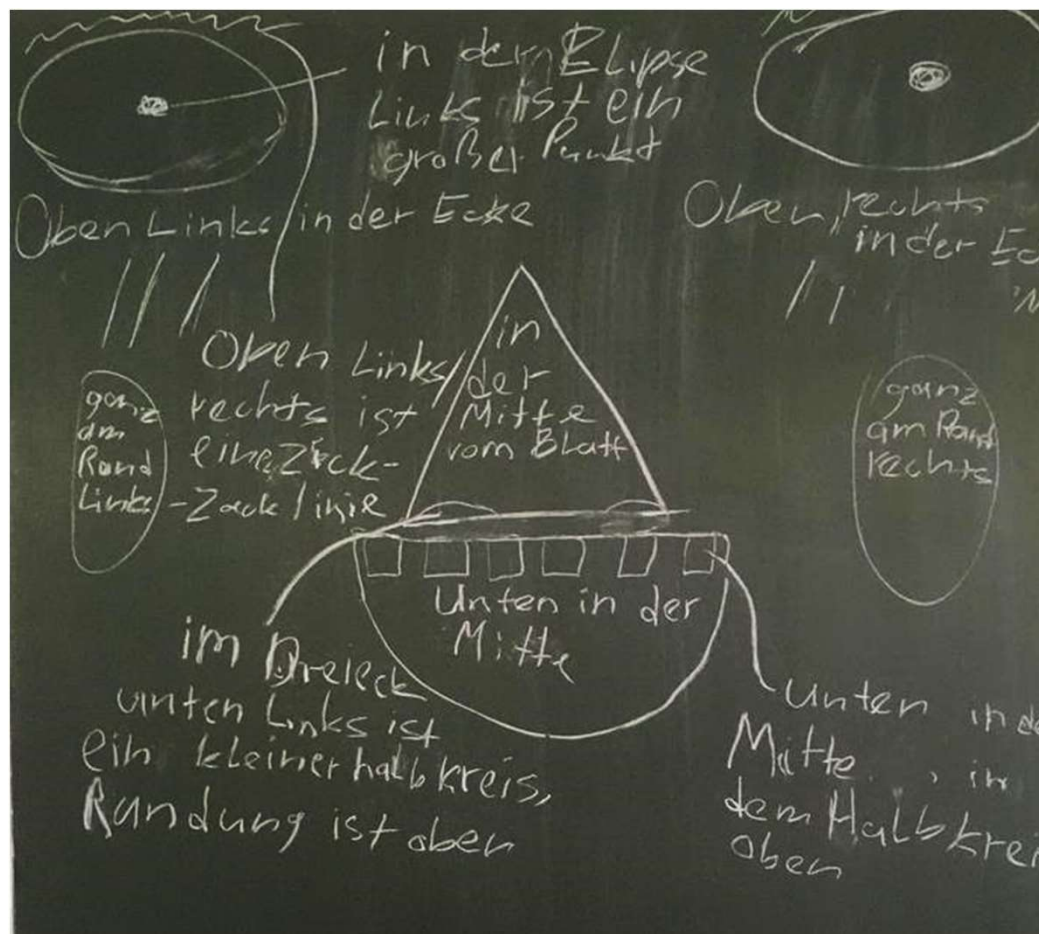 in dem Elipse
Links ist ein
großer Punkt
Oben Links in der Ecke
Oben, rechts
in der Ec
Oben Links/
rechts ist
eine Zick-
-Zack linie
in
der
Mitte
vom Blatt
ganz
am
Rand
Links
ganz
am Rand
rechts
Unten in der
Mitte
im Dreieck
unten Links ist
ein kleiner halbkreis,
Rundung ist oben
unten in de
Mitte, in
dem Halbkrei
oben